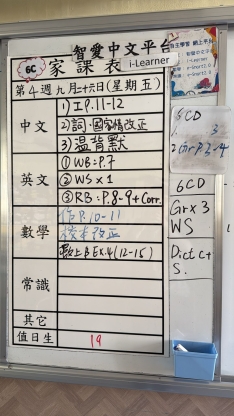 智愛中文平台
i-Learner
6C 家課表
第4週九月二十六日(星期五)
中文
1) 工P.11-12
2) 詞、國家情改正
3) 温背默
英文
① WB: P.7
② WS x 1
③ RB: P.8-9 + Corr.
數學
作P.10-11
校本改正
數上B Ex.4(12-15)
常識
其它
值日生
19
6CD
3
6CD
Gr x 3
WS
Dict c+
S.